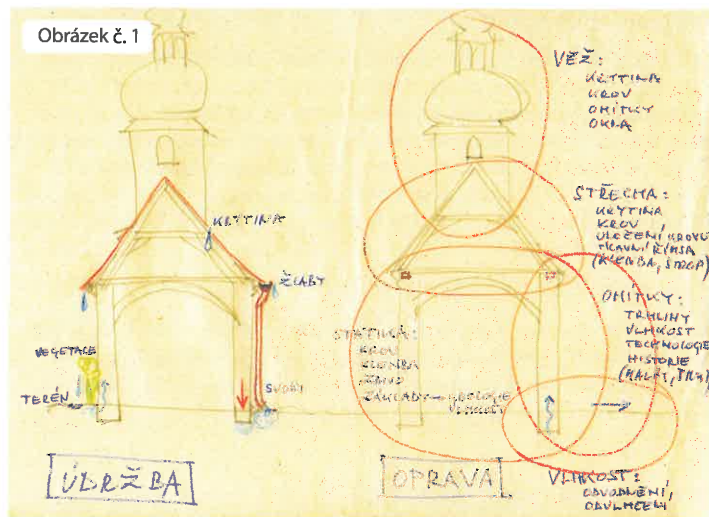 Obrázek č. 1
KRYTINA
ŽLABY
VEGETACE
TERÉN
SVODY
ÚDRŽBA
VĚŽ:
KRYTINA
KROV
OMÍTKY
OKNA
STŘECHA:
KRYTINA
KROV,
ULOŽENÍ KROVU
HLAVNÍ ŘÍMSA
(KLENBA, STROP)
OMÍTKY:
TRHLINY
VLHKOST
TECHNOLOGIE
HISTORIE
STATIKA:
KROV
KLENBA
ZDIVO
ZÁKLADY → GEOLOGIE
VLHKOST:
ODVODNĚNÍ,
ODVLHČENÍ
OPRAVA